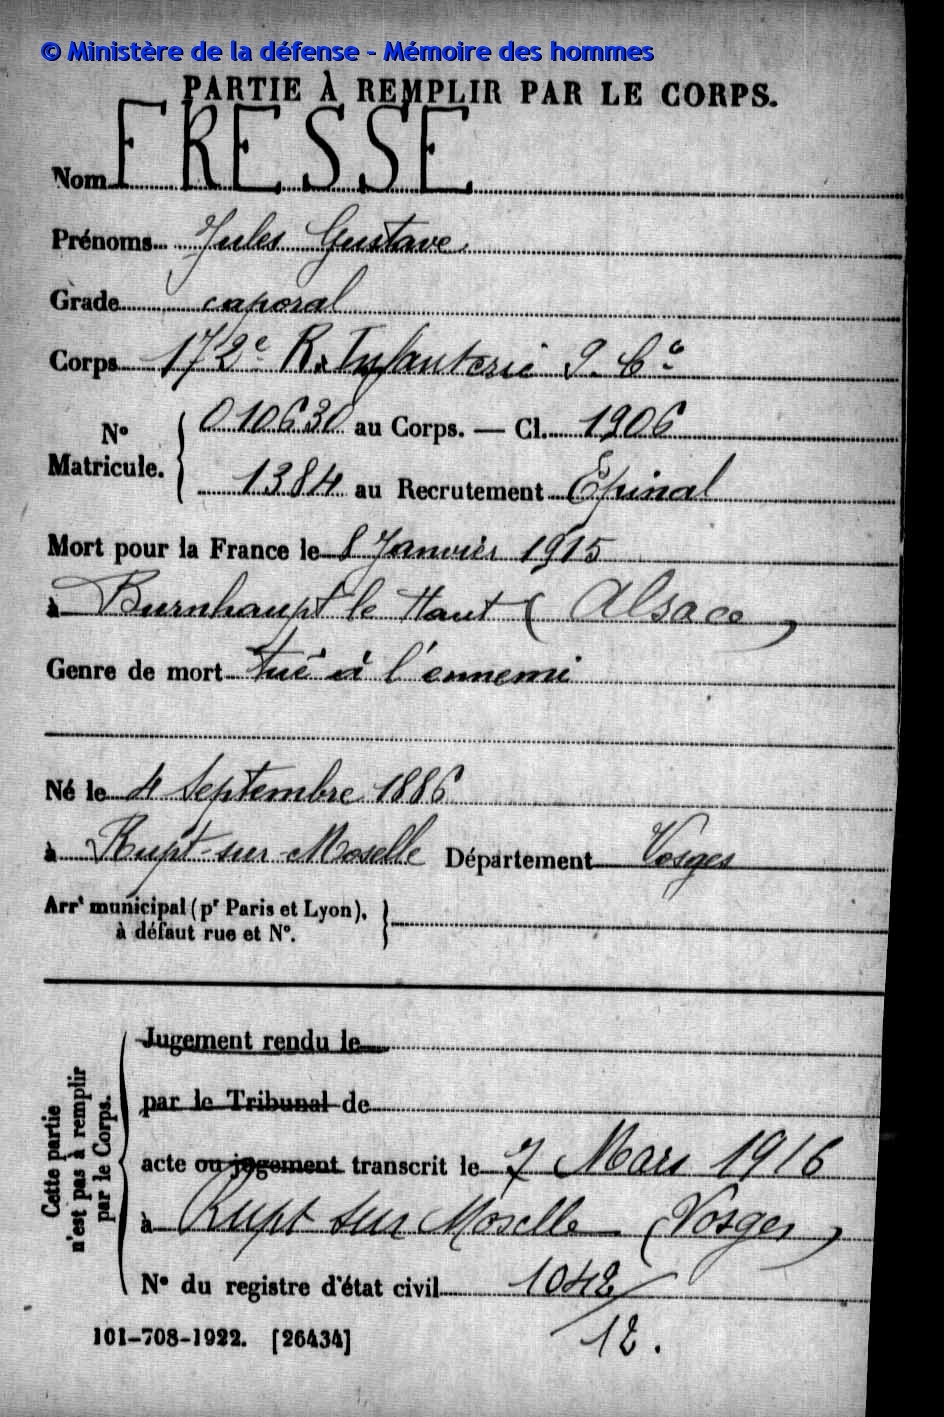 © Ministère de la défense - Mémoire des hommes
PARTIE À REMPLIR PAR LE CORPS.
Nom FRESSE
Prénoms Jules Gustave
Grade caporal
Corps 172e R. Infanterie 9. Cie
N° Matricule. { 010630 au Corps. — Cl. 1906
1384 au Recrutement Epinal
Mort pour la France le 8 Janvier 1915
à Burnhaupt le Haut (Alsace)
Genre de mort tué à l'ennemi
Né le 4 Septembre 1886
à Rupt-sur-Moselle Département Vosges
Arrt municipal (pr Paris et Lyon),
à défaut rue et N°.
Cette partie
n'est pas à remplir
par le Corps.
Jugement rendu le
par le Tribunal de
acte ou jugement transcrit le 7 Mars 1916
à Rupt sur Moselle (Vosges)
N° du registre d'état civil 1042/
12.
101-708-1922. [26434]